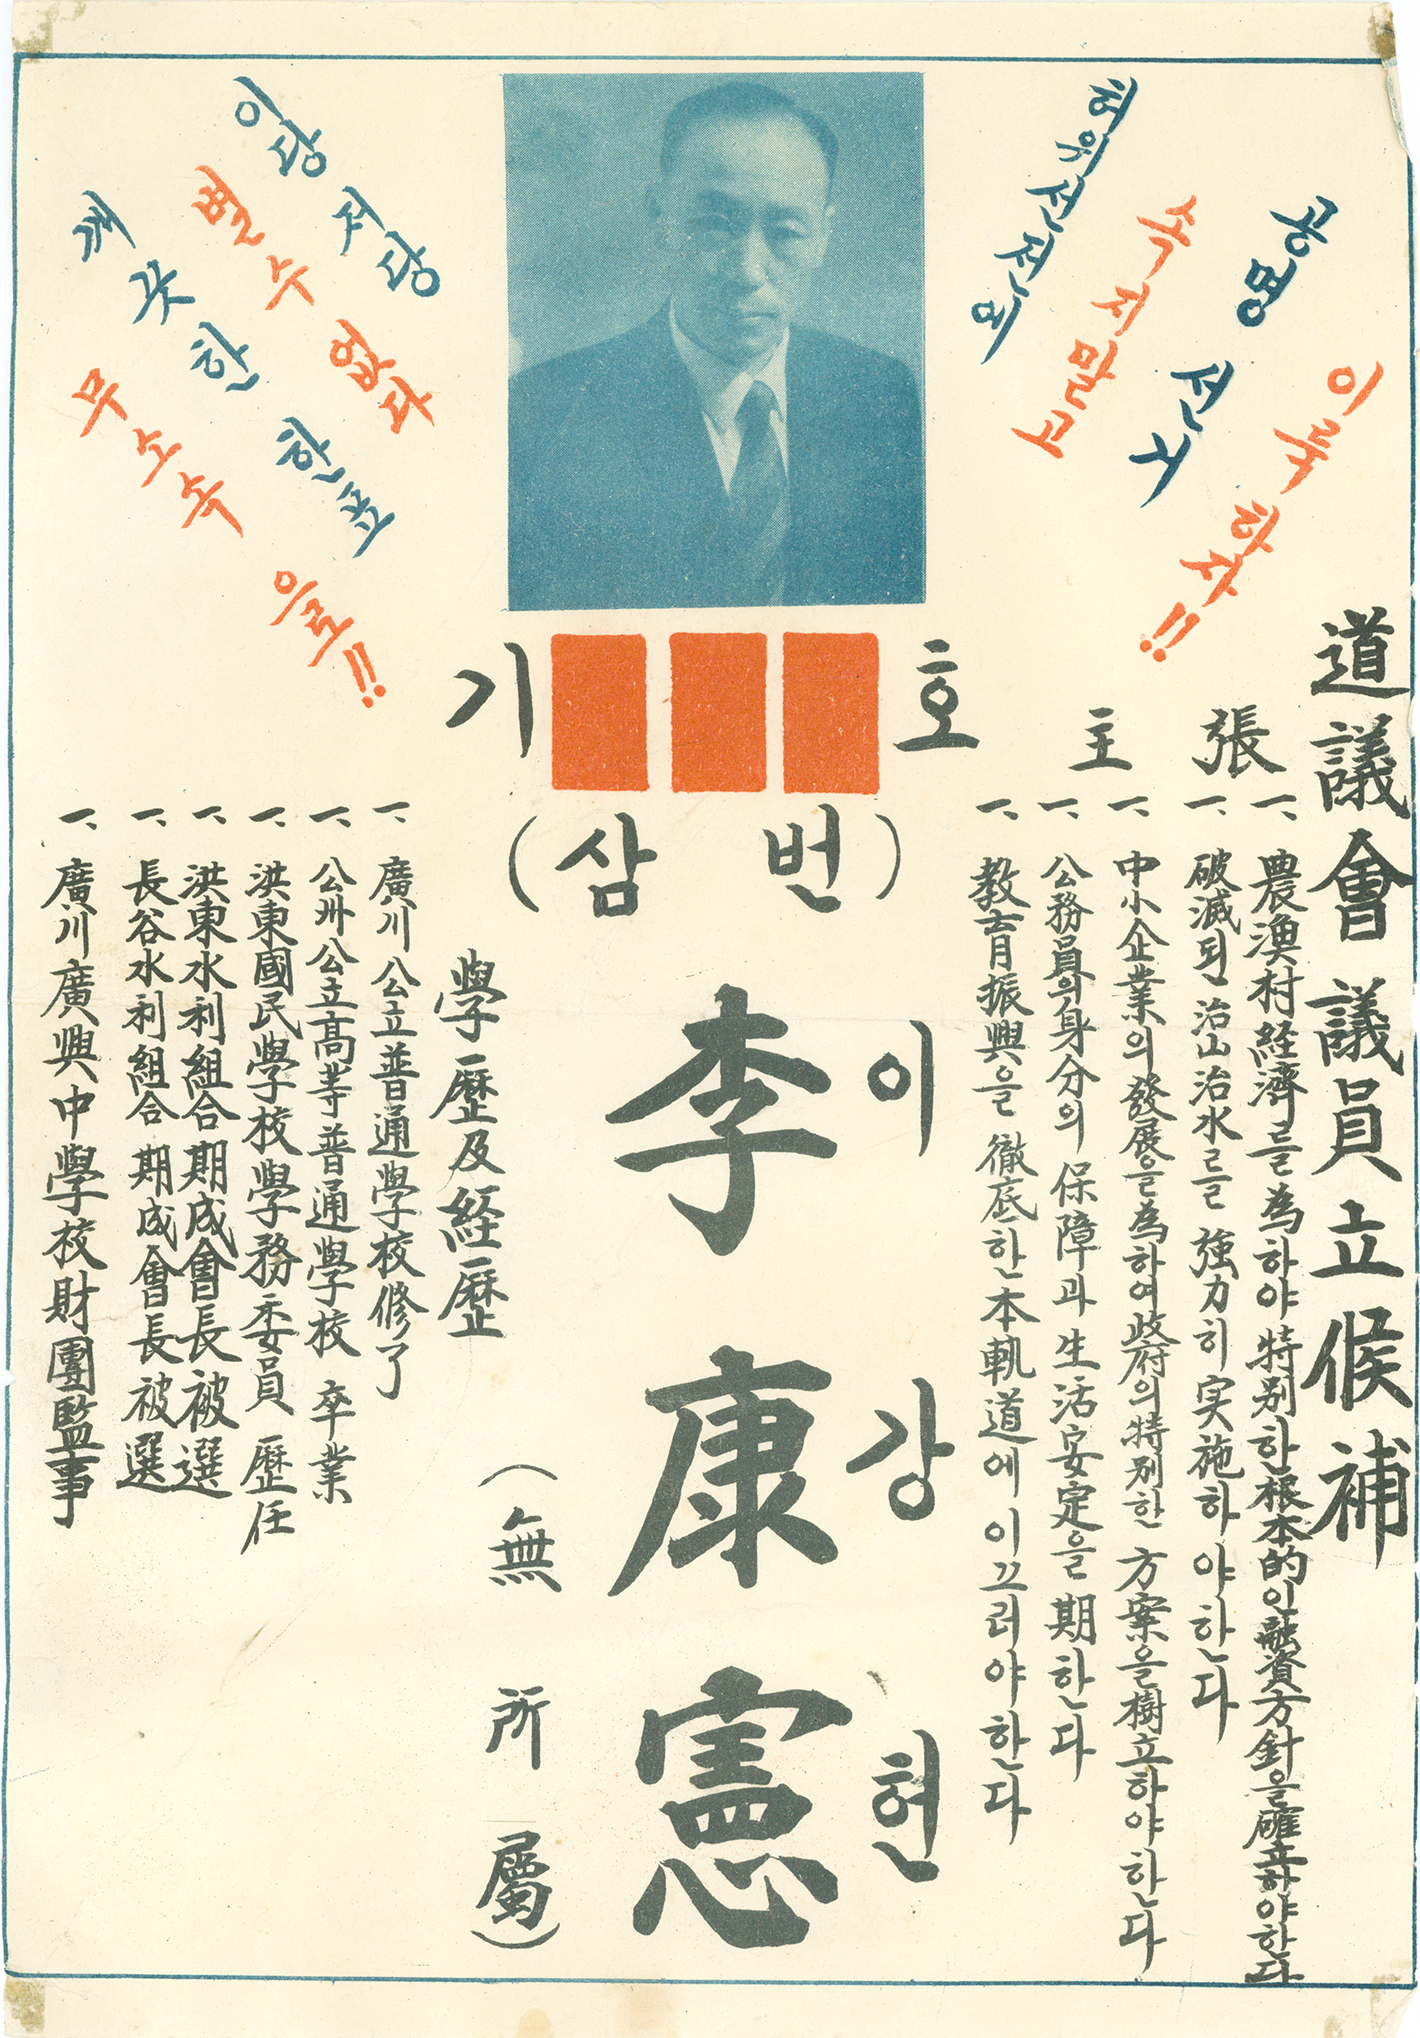 道議會議員立候補
허위선전에
속지말고
공명 선거
이룩하자!!
이당 저당
별수 없다
깨끗한 한표
무소속 으로!!
기 호
(삼 번)
主張
一、農漁村経濟를 為하야 特別한 根本的인 融資方針을 確立하야한다
一、破滅된 治山治水를 強力히 实施하야한다
一、中小企業의 發展을 為하여 政府의 特別한 方案을 樹立하야한다
一、公務員의 身分의 保障과 生活安定을 期한다
一、教育振興을 徹底한 本軌道에 이끄러야한다
이강헌
李康憲
(無所屬)
學歷及経歷
一、廣川公立普通學校修了
一、公州公立高等普通學校 卒業
一、洪東國民學校學務委員 歷任
一、洪東水利組合期成會長被選
一、長谷水利組合期成會長被選
一、廣川廣興中學校財團監事